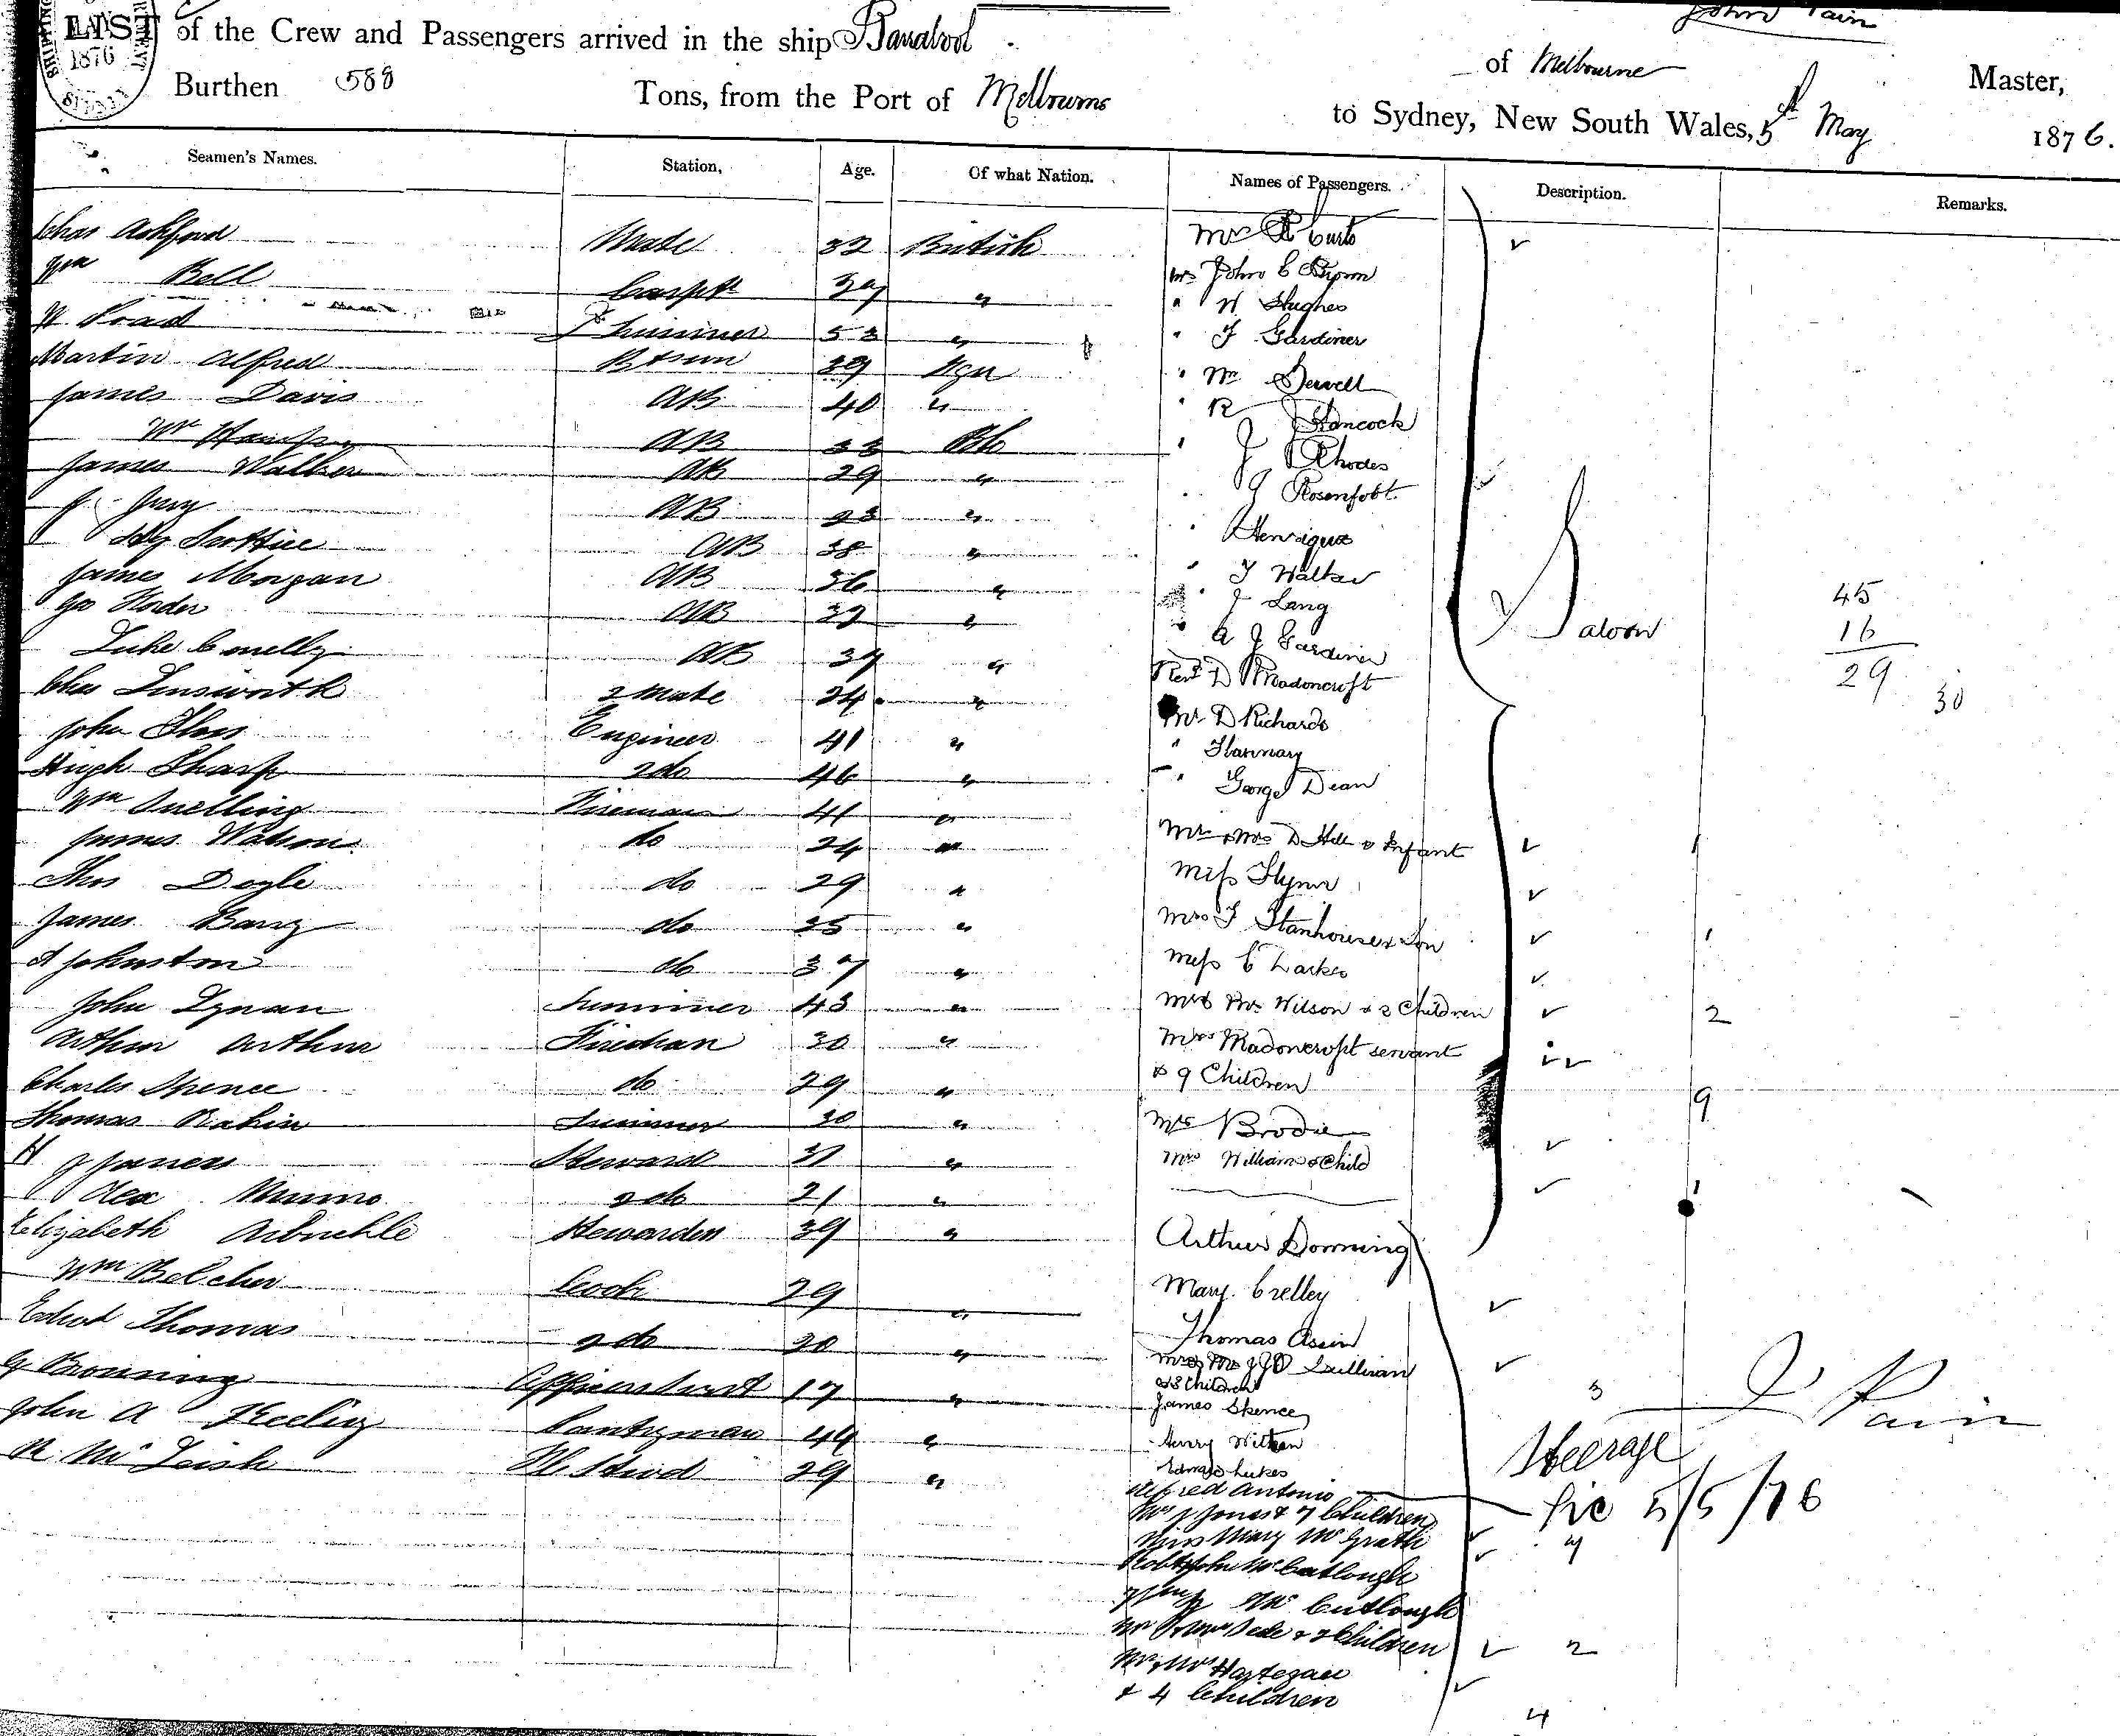 John Pain
LIST of the Crew and Passengers arrived in the ship Barrabool of Melbourne Master,
1876
Burthen 588 Tons, from the Port of Melbourne to Sydney, New South Wales, 5th May 1876.
Seamen's Names. Station, Age. Of what Nation. Names of Passengers. Description. Remarks.
Chas Ashford Mate 32 British Mrs Curtis
Wm Bell Carptr 39 " Mr John C
W Trimmer 53 " " H Hughes
Martin Alfred 39 " F Gardiner
James Davis AB 40 " " Wm Sewell
Wm AB 33 " R Hancock
James Walker AB 29 " " J Rhodes
J Jury AB 23 " " J
Hy AB 38 " "
James Morgan AB 36 " " J Walker
Geo Horder AB 32 " " J Lang
Luke Conelly AB 37 " " A J Gardiner
Chas 2 Mate 24 " Revd D Madoncroft
John Engineer 41 " Mr D Richards
Hugh Sharp 2 do 46 " " Flannary
Wm Snelling Fireman 41 " " George Dean
Saloon
45
16
29
30
James Watson do 24 " Mr & Mrs D Hill & Infant 1
Thos Doyle do 29 " Miss Flynn
James Barry do 35 " Mrs F Stanhouse & Son 1
A Johnston do 37 " Miss C
John Lynan Trimmer 43 " Mr & Mrs Wilson & 2 Children 2
Arthur Arthur Fireman 30 " Mrs Madoncroft servant
Charles Spence do 29 " & 9 Children 9
Thomas Rabin Trimmer 30 " Mrs Brodie
H J James Steward 31 " Mrs Williams & Child 1
Alex Munro 2 do 21 "
Elizabeth Arbuckle Stewardess 39 " Arthur Downing
Wm Belcher Cook 29 " Mary Crelley
Edwd Thomas 2 do 20 " Thomas
Mr & Mrs J O Sullivan
G Browning Apprentice 17 " & 3 Children 3
James Spence
John A Pantryman 44 " Henry
R McLeish 29 " Edward Lukes
Steerage
J Pain
Alfred Antonio
fic 5/5/76
Mrs J Jones & 7 Children 7
Miss Mary McGrath
Robt & John McCutlough
McCutlough
Mr & Mrs & 2 Children 2
Mr & Mrs Hartegan
& 4 Children 4